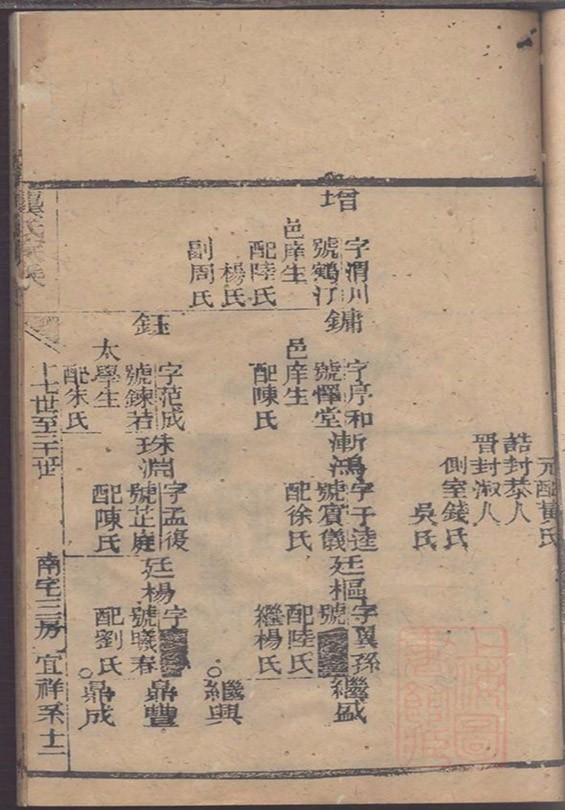 元配黃氏
誥封恭人
晉封淑人
側室錢氏
吳氏
增
字渭川
號鶴汀
邑庠生
配陸氏
楊氏
副周氏
鏞
字序和
號懌堂
邑庠生
配陳氏
漸鴻
字于逵
號賓儀
配徐氏
廷樞
字翼孫
號
配陸氏
繼楊氏
繼盛
繼興
鈺
字范成
號鍊若
太學生
配朱氏
珠淵
字孟復
號芷庭
配陳氏
廷楊
字
號曦春
配劉氏
鼎豐
鼎成
十七世至三十世
南宅三房
宜祥系十二